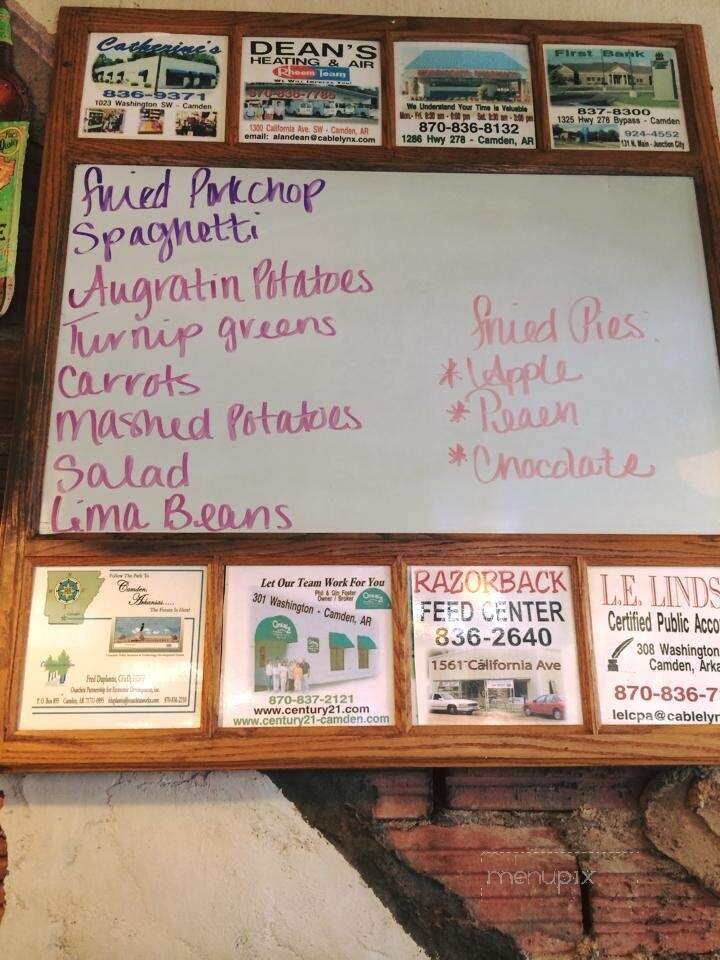 Catherine's
836-9371
1023 Washington SW - Camden
DEAN'S
HEATING & AIR
Rheem Team
870-836-7785
1300 California Ave. SW - Camden, AR
email: alandean@cablelynx.com
We Understand Your Time is Valuable
Mon.- Fri. 8:30 am - 6:00 pm Sat. 8:30 am - 3:00 pm
870-836-8132
1286 Hwy 278 - Camden, AR
First Bank
837-8300
1325 Hwy 278 Bypass - Camden
924-4552
131 N. Main - Junction City
Fried Porkchop
Spaghetti
Augratin Potatoes
Turnip greens
Carrots
Mashed Potatoes
Salad
Lima Beans
Fried Pies
* Apple
* Peach
* Chocolate
Follow The Path To
Camden,
Arkansas.....
The Future Is Here!
Let Our Team Work For You
Phil & Gin Foster
Owner / Broker
301 Washington - Camden, AR
Century 21
870-837-2121
www.century21.com
www.century21-camden.com
RAZORBACK
FEED CENTER
836-2640
1561 California Ave
L.E. LINDS
Certified Public Acco
308 Washington
Camden, Arka
870-836-7
lelcpa@cablelyn
menupix